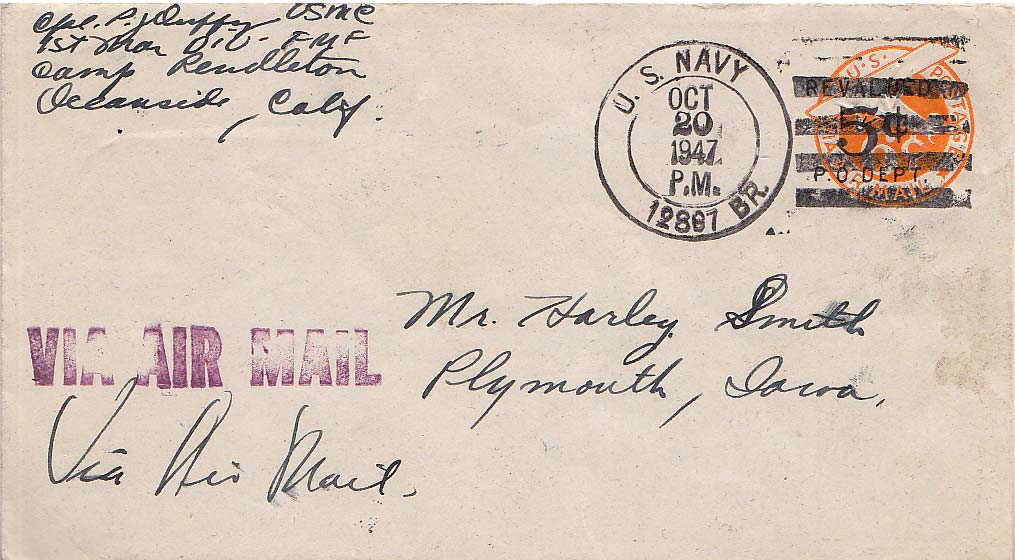 Cpl. P. J. Duffy USMC
1st Mar Div - FMF
Camp Pendleton
Oceanside, Calif.
U. S. NAVY
OCT
20
1947
P.M.
12867 BR.
U.S. POSTAGE
REVALUED
5¢
P.O. DEPT.
VIA AIR MAIL
Mr. Harley Smith
Plymouth, Iowa.
VIA AIR MAIL
Via Air Mail.